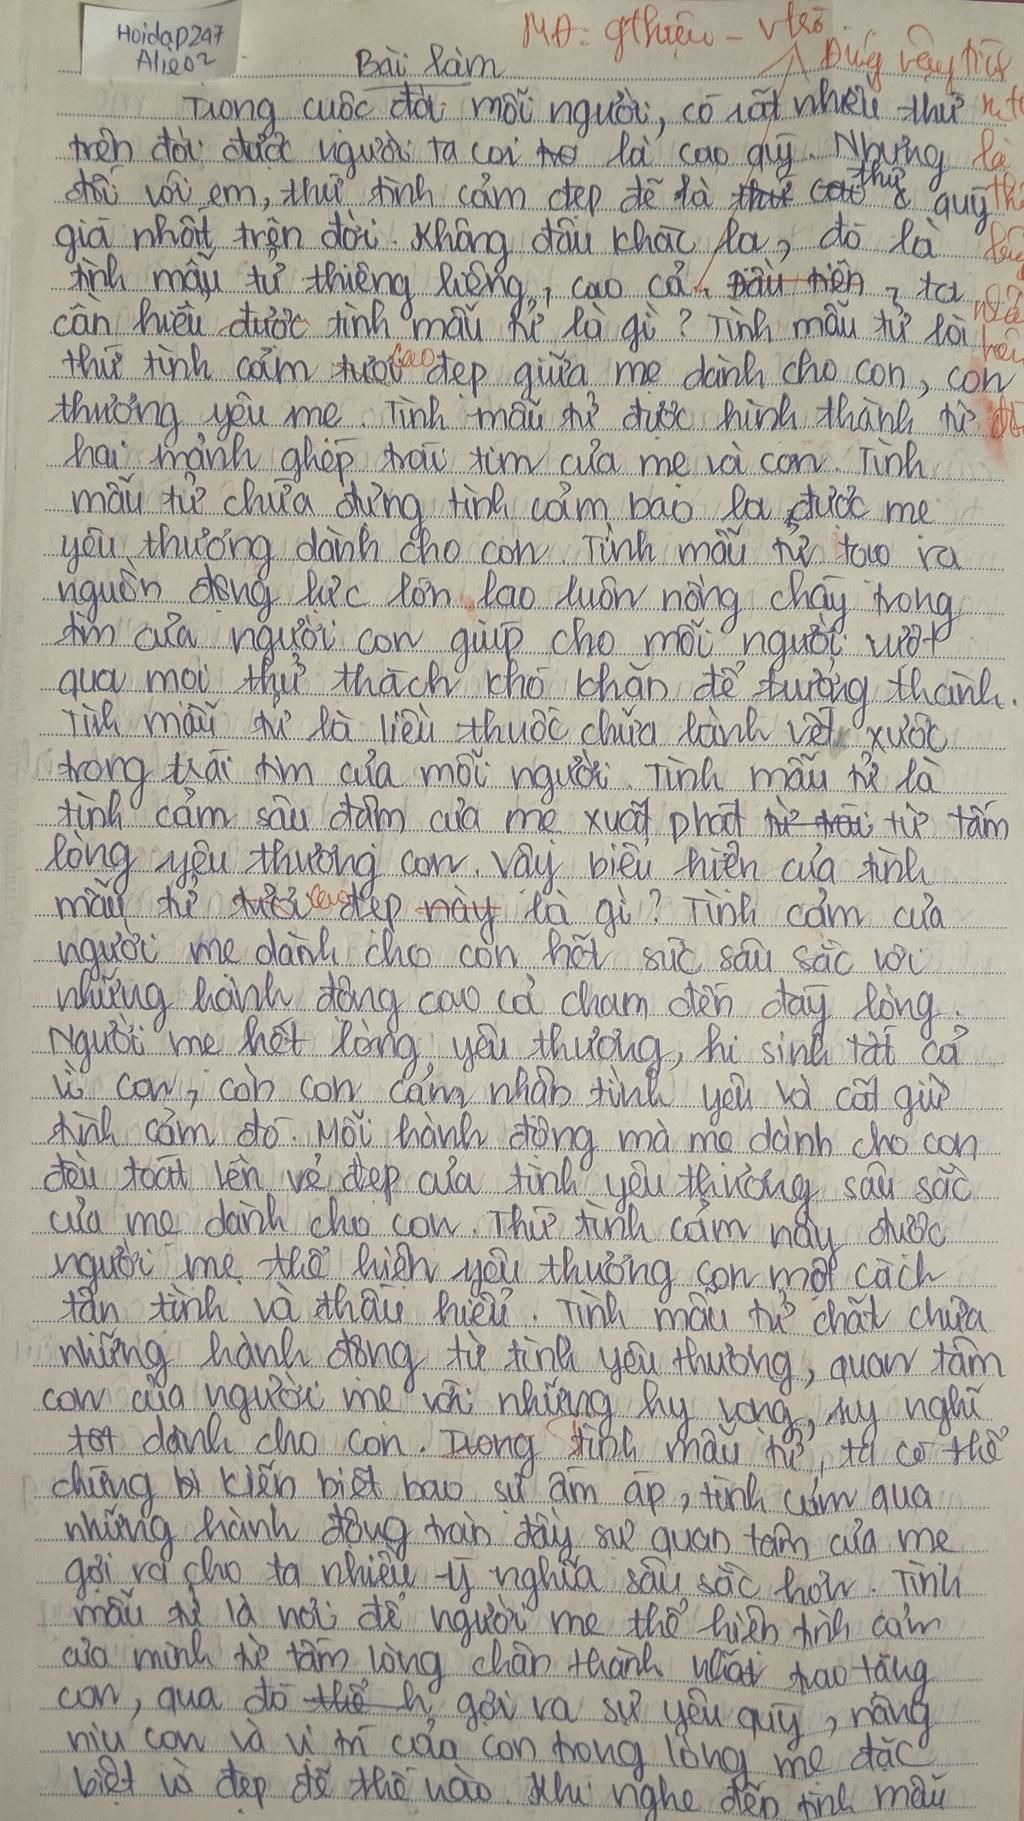 Hoidap247
Alie02
MĐ: gthiệu - vtrò
Đúng vậy tình
Bài làm
Trong cuộc đời mỗi người, có rất nhiều thứ
trên đời được người ta coi trọ là cao quý. Nhưng
đối với em, thứ tình cảm đẹp đẽ là thứ cao thứ quý
giá nhất trên đời. Không đâu khác lạ, đó là
tình mẫu tử thiêng liêng, cao cả. Đầu tiên, ta
cần hiểu được tình mẫu tử là gì? Tình mẫu tử là
thứ tình cảm tươi cao đẹp giữa mẹ dành cho con, con
thương yêu mẹ. Tình mẫu tử được hình thành từ
hai mảnh ghép trái tim của mẹ và con. Tình
mẫu tử chứa đựng tình cảm bao la được mẹ
yêu thương dành cho con. Tình mẫu tử tạo ra
nguồn động lực lớn lao luôn nồng cháy trong
tim của người con giúp cho mỗi người vượt
qua mọi thử thách khó khăn để trưởng thành.
Tình mẫu tử là liều thuốc chữa lành vết xước
trong trái tim của mỗi người. Tình mẫu tử là
tình cảm sâu đậm của mẹ xuất phát từ trái từ tấm
lòng yêu thương con. Vậy biểu hiện của tình
mẫu tử tươi cao đẹp này là gì? Tình cảm của
người mẹ dành cho con hết sức sâu sắc với
những hành động cao cả chạm đến đáy lòng.
Người mẹ hết lòng yêu thương, hi sinh tất cả
vì con, còn con cảm nhận tình yêu và cất giữ
tình cảm đó. Mỗi hành động mà mẹ dành cho con
đều toát lên vẻ đẹp của tình yêu thương sâu sắc
của mẹ dành cho con. Thứ tình cảm này được
người mẹ thể hiện yêu thương con một cách
tận tình và thấu hiểu. Tình mẫu tử chất chứa
những hành động từ tình yêu thương, quan tâm
con của người mẹ với những hy vọng, suy nghĩ
tốt dành cho con. Trong tình mẫu tử, ta có thể
chứng kiến biết bao sự ấm áp, tình cảm qua
những hành động tràn đầy sự quan tâm của mẹ
gợi ra cho ta nhiều ý nghĩa sâu sắc hơn. Tình
mẫu tử là nơi để người mẹ thể hiện tình cảm
của mình từ tấm lòng chân thành nhất trao tặng
con, qua đó thể h gợi ra sự yêu quý, nâng
niu con và vị trí của con trong lòng mẹ đặc
biệt và đẹp đẽ thế nào. Khi nghe đến tình mẫu